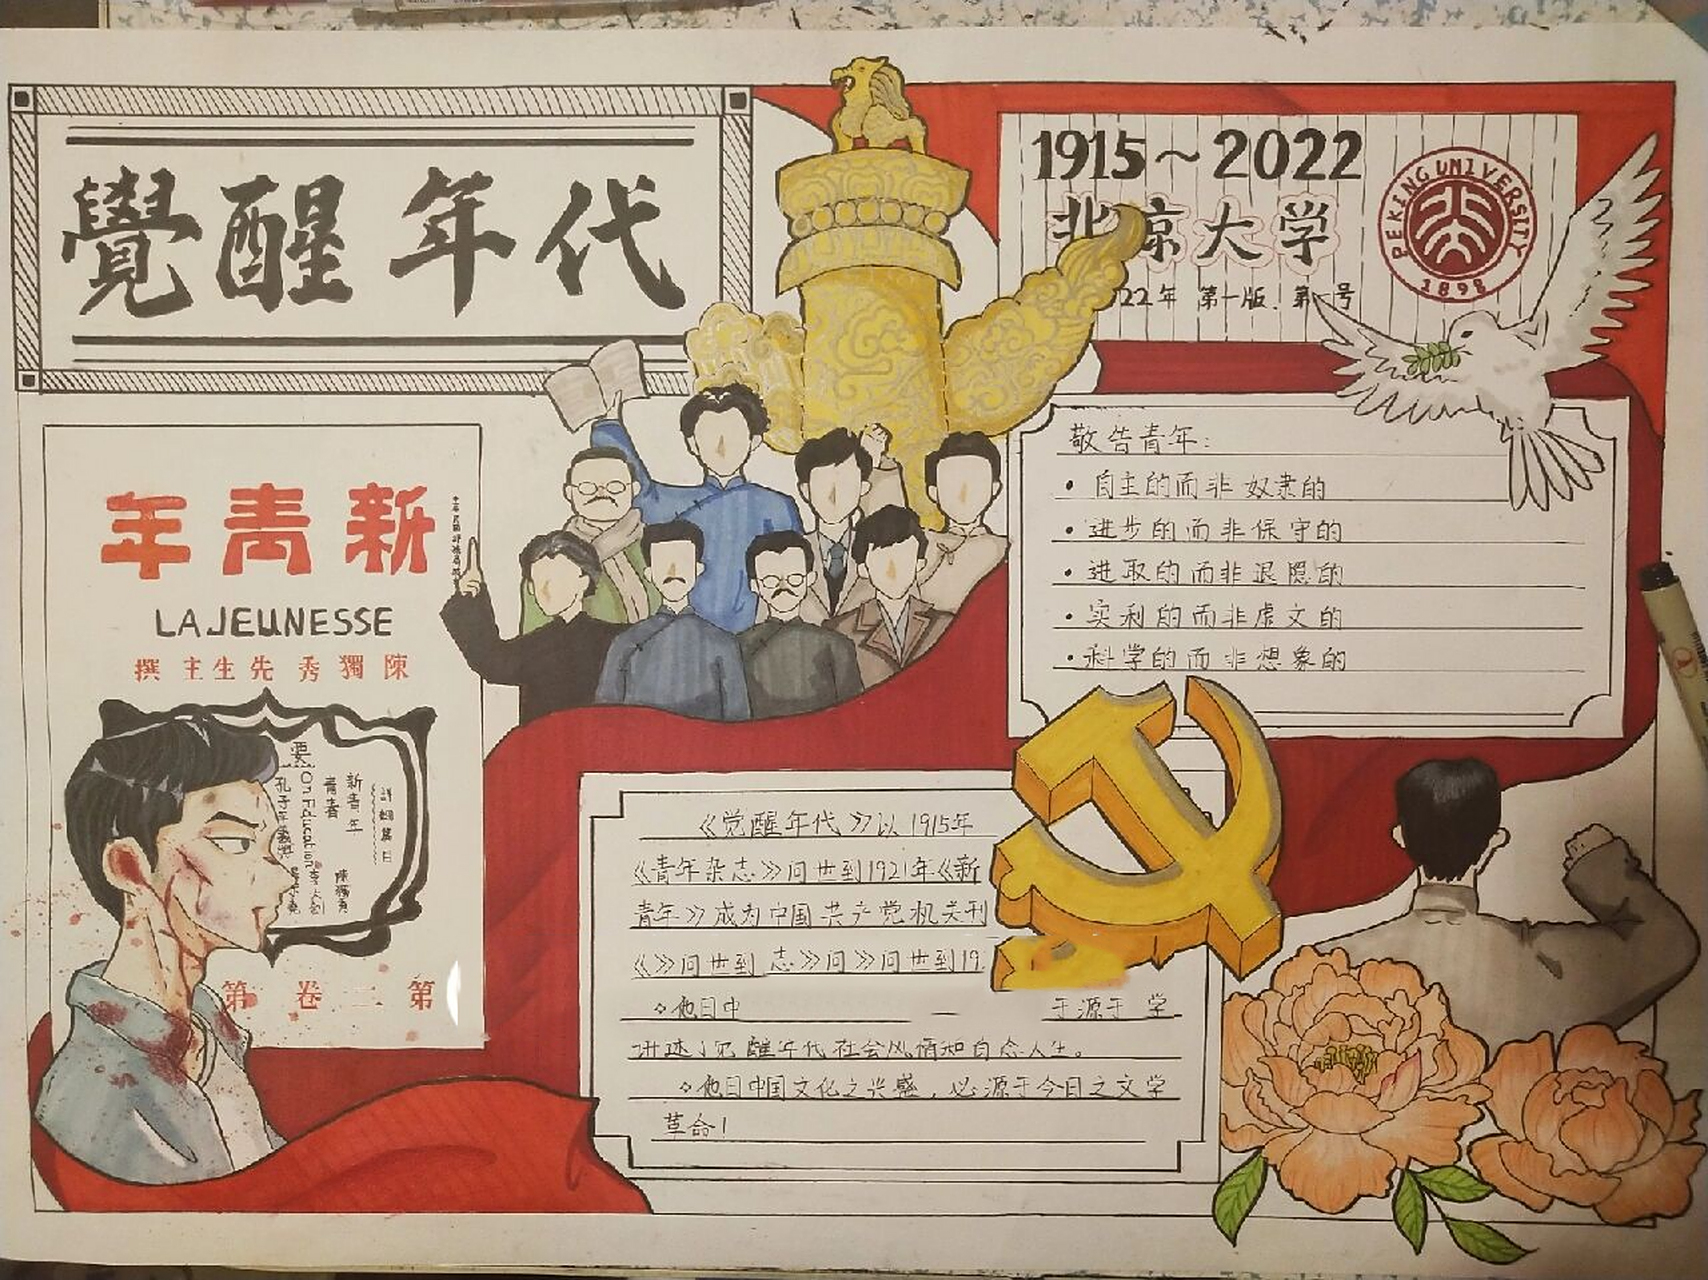 覺醒年代
1915~2022
北京大学
22年 第一版 第一号
PEKING UNIVERSITY
1898
年青新
LAJEUNESSE
撰主生先秀獨陳
要
On Education
青春
新青年
第二卷第
敬告青年:
·自主的而非奴隶的
·进步的而非保守的
·进取的而非退隐的
·实利的而非虚文的
·科学的而非想象的
《觉醒年代》以1915年
《青年杂志》问世到1921年《新
青年》成为中国共产党机关刊
《》问世到 志》问》问世到19
◇他日中 于源于 学
讲述了觉醒年代社会风情和百态人生。
◇他日中国文化之兴盛，必源于今日之文学
革命!